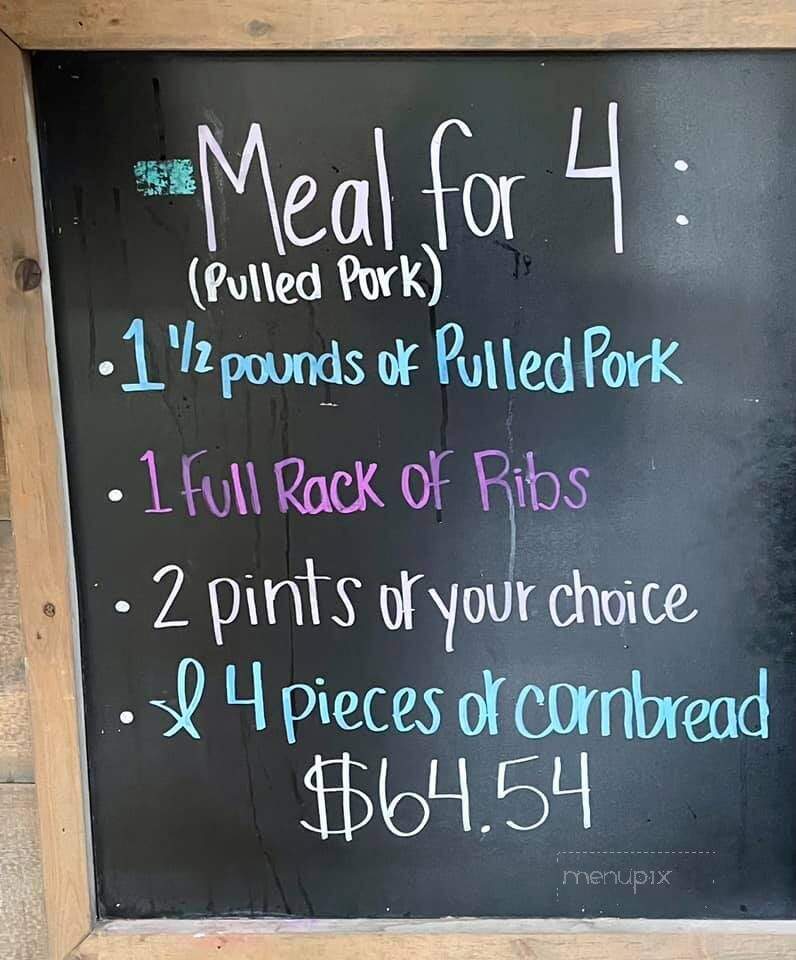 Meal for 4:
(Pulled Pork)
• 1 1/2 pounds of Pulled Pork
• 1 Full Rack of Ribs
• 2 pints of your choice
• & 4 pieces of cornbread
$64.54
menupix